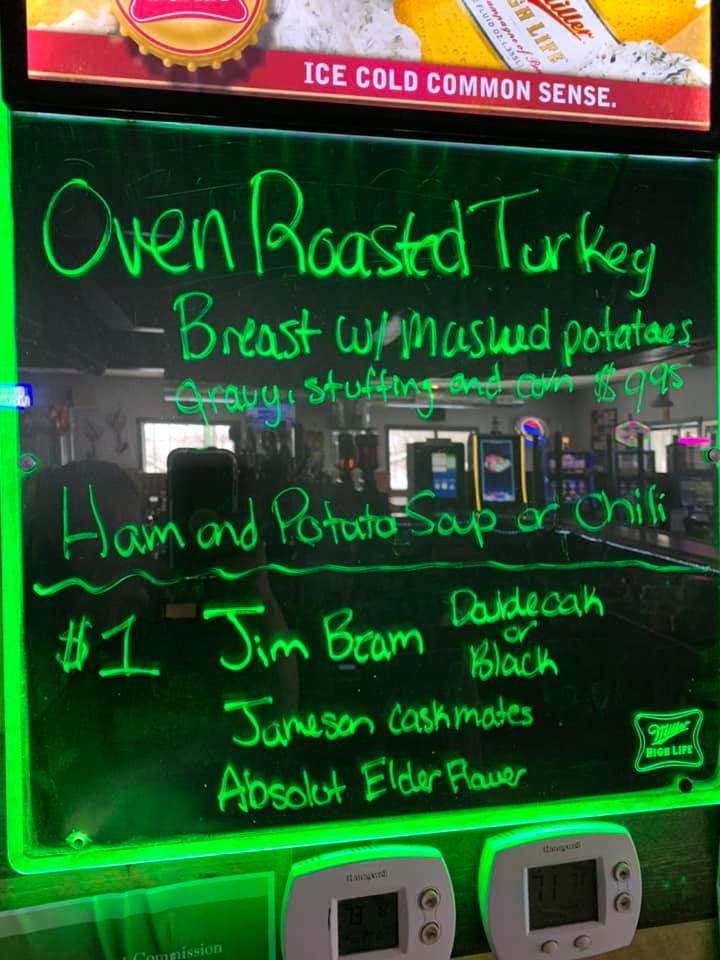 HIGH LIFE
Miller
HIGH LIFE
ICE COLD COMMON SENSE.
Oven Roasted Turkey
Breast w/ mashed potatoes
gravy, stuffing and corn $9.95
Ham and Potato Soup or Chili
$1 Jim Beam Double oak
or
Black
Jameson caskmates
Absolut Elder Flower
Miller
HIGH LIFE
Honeywell
Honeywell
Commission